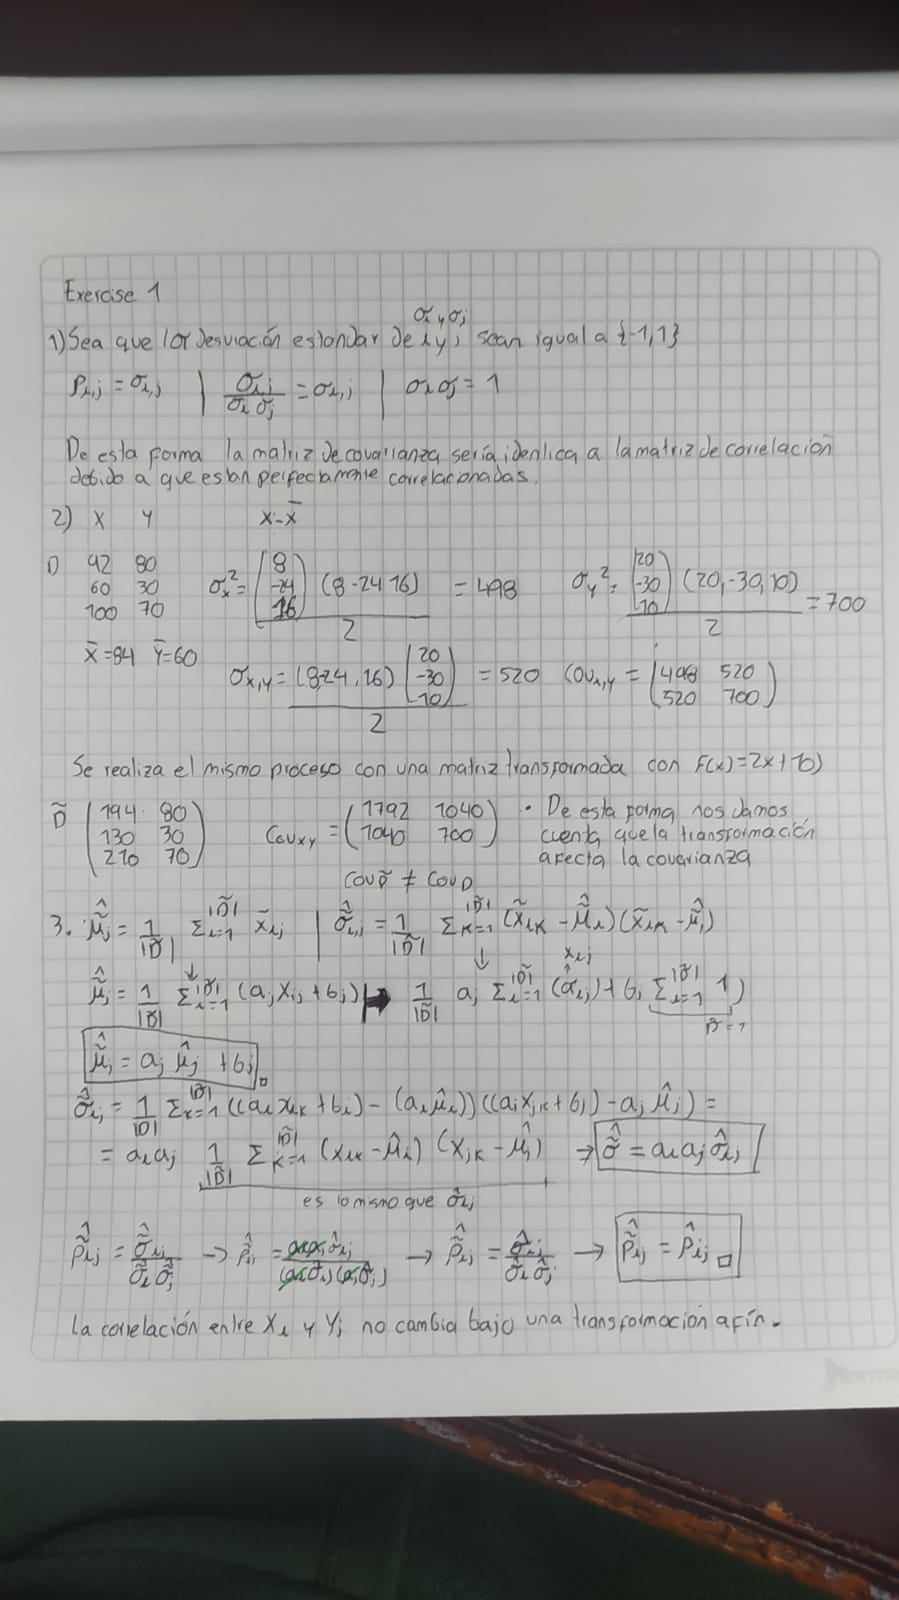 Exercise 1
σᵢ y σⱼ
1) Sea que lor desviación estandar de i y j sean igual a {-1,1}
ρᵢ,ⱼ = σᵢ,ⱼ | σᵢ,ⱼ / σᵢ σⱼ = σᵢ,ⱼ | σᵢ σⱼ = 1
De esta forma la matriz de covarianza sería identica a la matriz de correlación
debido a que estan perfectamente correlacionadas.
2) X Y X - X̄
D
92 80
60 30
100 70
σₓ² = (8 -24 16) (8 -24 16) / 2 = 498
σᵧ² = (20 -30 10) (20, -30, 10) / 2 = 700
X̄ = 84 Ȳ = 60
σₓ,ᵧ = (8 -24, 16) (20 -30 10) / 2 = 520
Covₓ,ᵧ = (498 520
520 700)
Se realiza el mismo proceso con una matriz transformada con F(x) = 2x + 10)
D̃ (194 80
130 30
210 70)
Covxy = (1792 1040
1040 700)
• De esta forma nos damos
cuenta que la transformación
afecta la covarianza
Cov D̃ ≠ Cov D
3. μ̃̂ⱼ = 1/|D̃| Σᵢ₌₁^|D̃| x̃ᵢⱼ | σ̃̂ᵢ,ⱼ = 1/|D̃| Σₖ₌₁^|D̃| (x̃ᵢₖ - μ̃̂ᵢ)(x̃ᵢₖ - μ̃̂ⱼ)
↓ ↓ xᵢⱼ
μ̃̂ⱼ = 1/|D̃| Σᵢ₌₁^|D̃| (aⱼ xᵢⱼ + bⱼ) ↦ 1/|D̃| aⱼ Σᵢ₌₁^|D̃| ( ) + bⱼ Σᵢ₌₁^|D̃| 1)
μ̃̂ⱼ = aⱼ μ̂ⱼ + bⱼ □
σ̃̂ᵢⱼ = 1/|D̃| Σₖ₌₁^|D̃| ((aᵢ xᵢₖ + bᵢ) - (aᵢ μ̂ᵢ)) ((aⱼ xⱼₖ + bⱼ) - aⱼ μ̂ⱼ) =
= aᵢ aⱼ 1/|D̃| Σₖ₌₁^|D̃| (xᵢₖ - μ̂ᵢ) (xⱼₖ - μ̂ⱼ) → σ̃̂ = aᵢ aⱼ σ̂ᵢⱼ
es lo mismo que σ̂ᵢⱼ
ρ̃̂ᵢⱼ = σ̃̂ᵢⱼ / σ̃̂ᵢ σ̃̂ⱼ → ρ̃̂ᵢⱼ = aᵢ aⱼ σ̂ᵢⱼ / (aᵢ σ̂ᵢ)(aⱼ σ̂ⱼ) → ρ̃̂ᵢⱼ = σ̂ᵢⱼ / σ̂ᵢ σ̂ⱼ → ρ̃̂ᵢⱼ = ρ̂ᵢⱼ □
La correlación entre Xᵢ y Yⱼ no cambia bajo una transformación afín.
norma